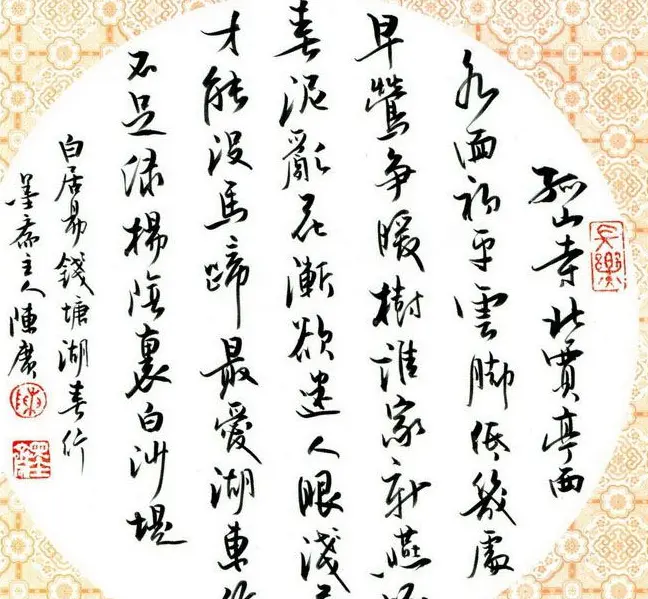 孤山寺北賈亭西
水面初平雲脚低幾處
早鶯争暖樹誰家新燕
春泥亂花漸欲迷人眼淺
才能没馬蹄最愛湖東行
不足綠楊陰裏白沙堤
白居易錢塘湖春行
墨齋主人陳廣